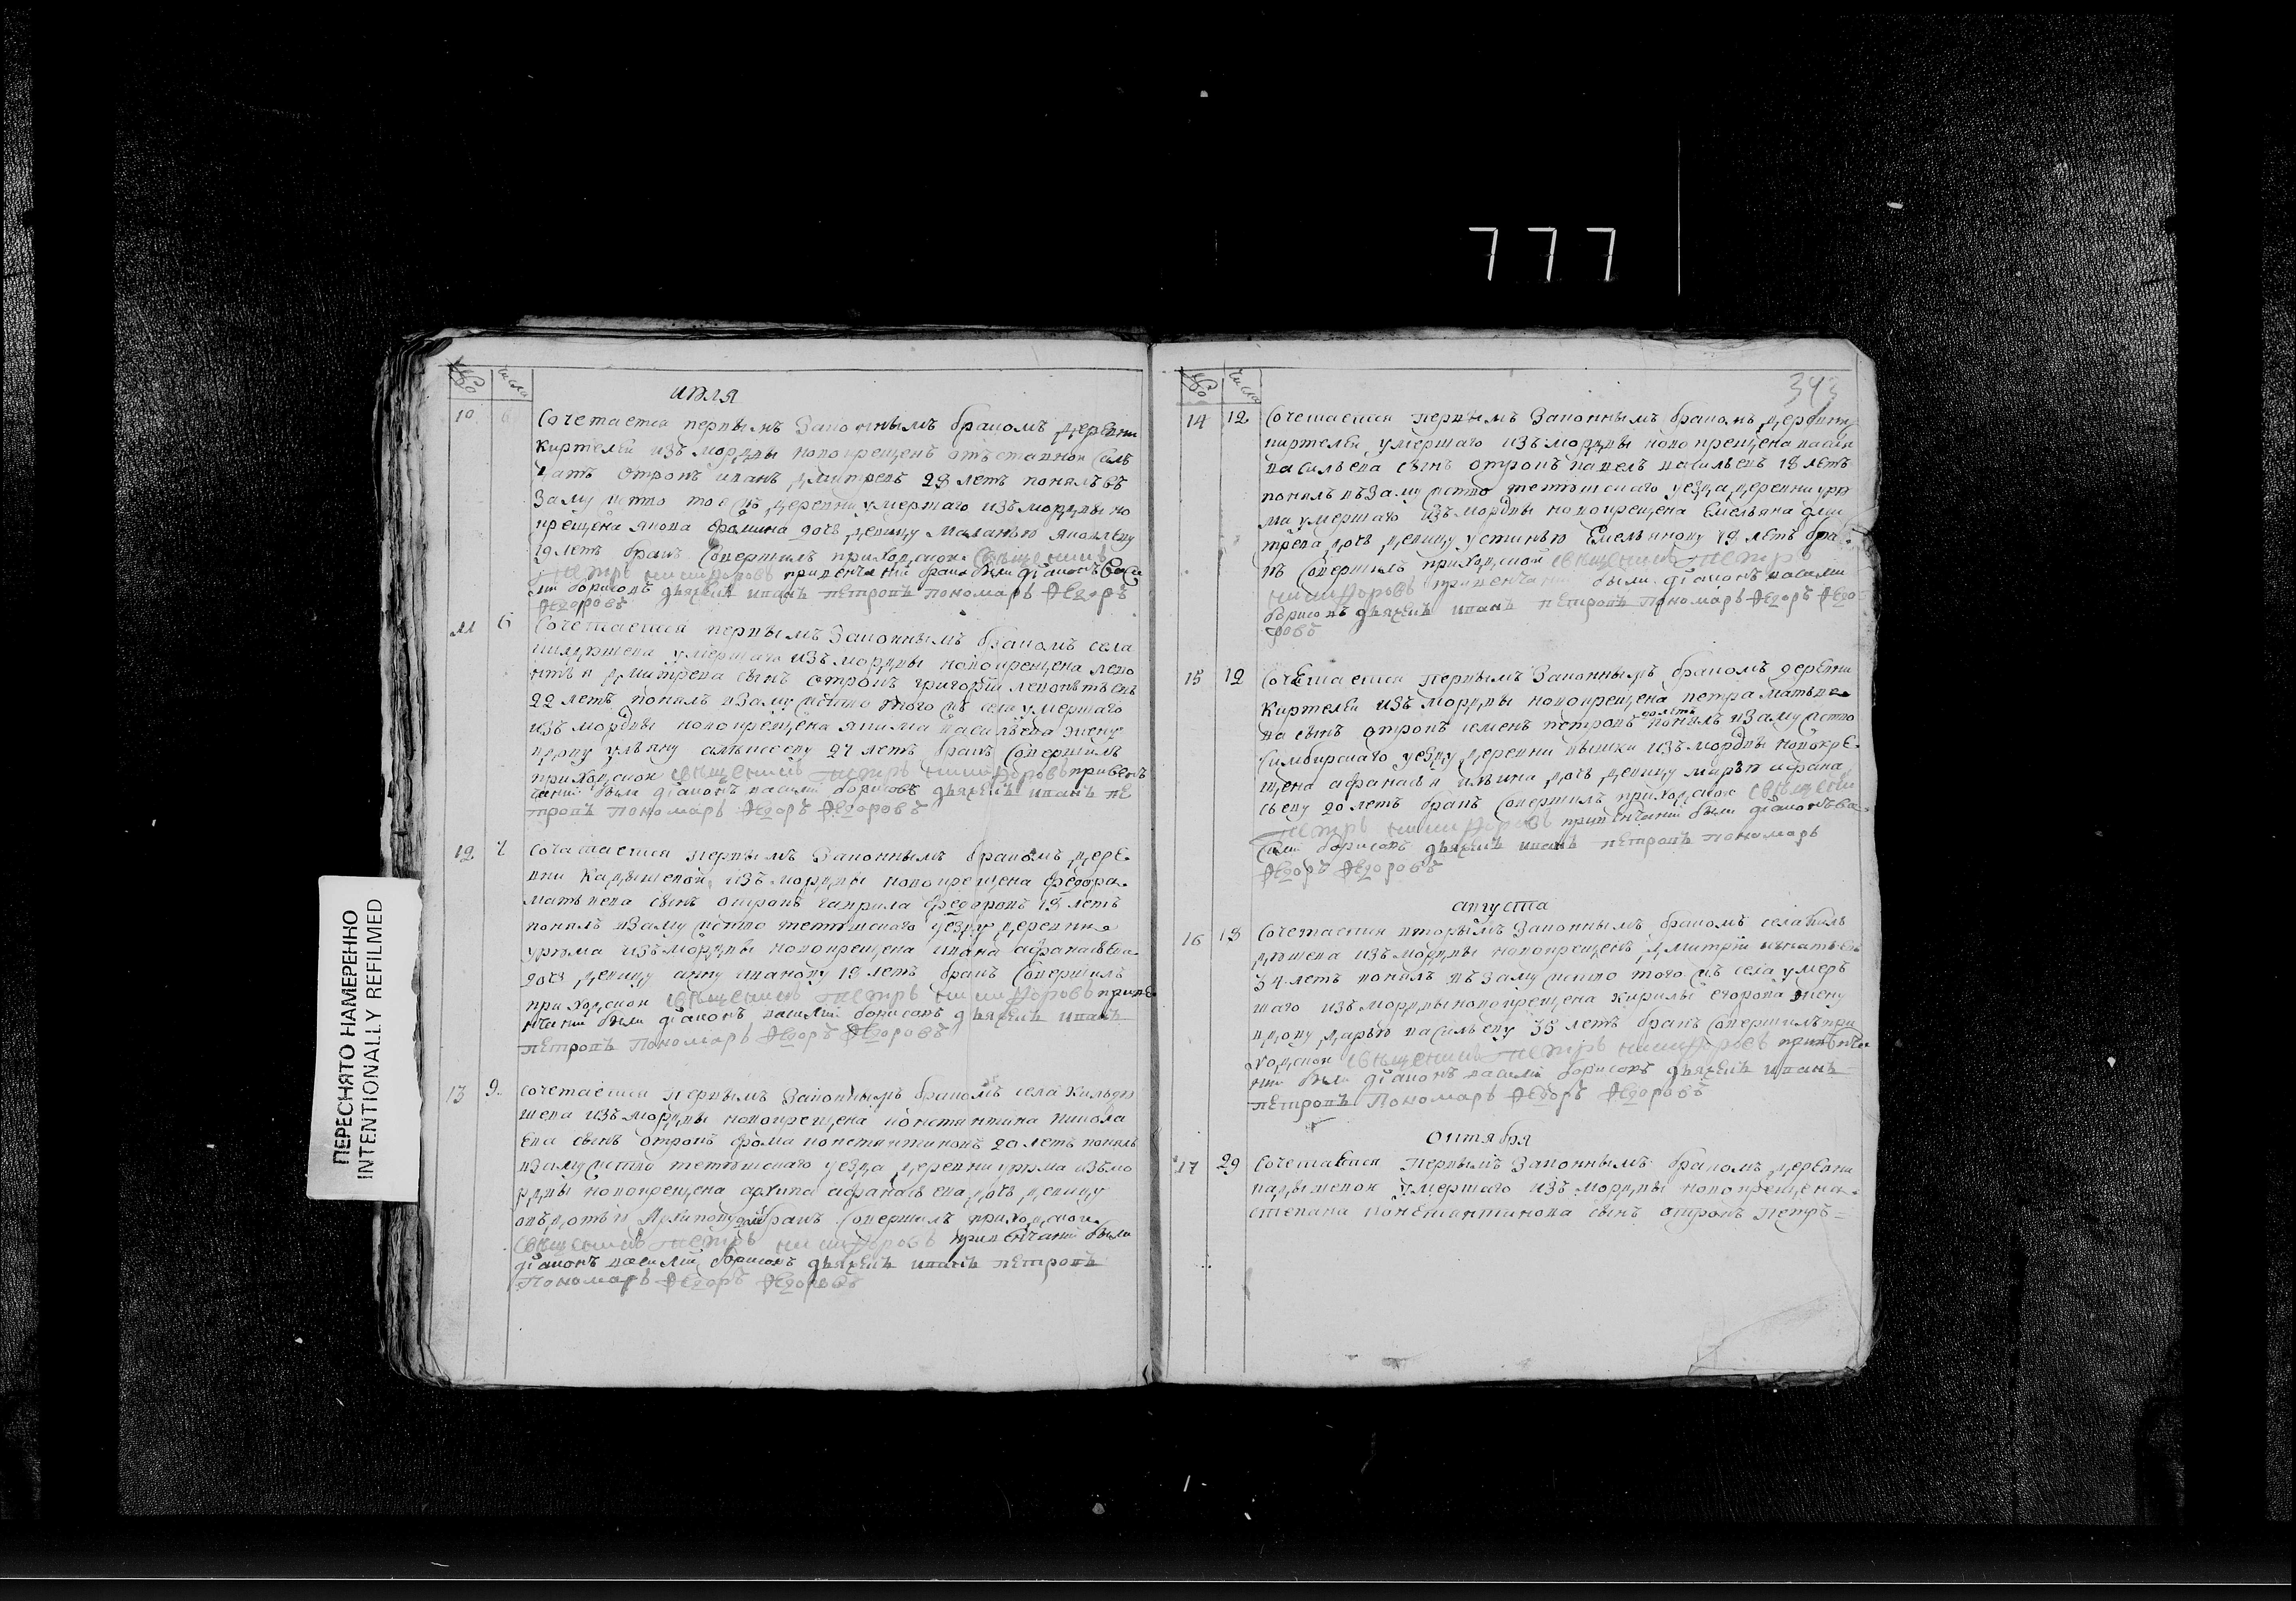 777
ПЕРЕСНЯТО НАМЕРЕННО
INTENTIONALLY REFILMED
№ числа
июля
10 6 Сочетается первымъ Законнымъ бракомъ деревни
Киртелей изъ мордвы новокрещенъ отъставной Сол
датъ отрокъ иванъ дмитревъ 28 летъ понялъ въ
Замужство тое жъ деревни умершаго изъ мордвы но
крещена якова фомина дочь девицу маланью яковлеву
19 летъ бракъ Совершилъ приходской Священникъ
Петръ никифоровъ при венчаніи брака были діаконъ Васи
лий борисовъ дьячекъ иванъ петровъ пономарь Федоръ
Федоровъ
11 6 Сочетается первымъ Законнымъ бракомъ села
килдюшева умершаго изъ мордвы новокрещена лево
нтья дмитрева сынъ отрокъ григорій левонтьевъ
22 летъ понялъ взамужство того жъ села умершаго
изъ мордвы новокрещена якима васильева жену
вдову ульяну алексееву 27 летъ бракъ Совершилъ
приходской священникъ Петръ никифоровъ привен
чаніи были діаконъ василий борисовъ дьячекъ иванъ пе
тровъ Пономарь Федоръ Федоровъ
12 7 сочетается первымъ Законнымъ бракомъ дере
вни Кадышевой изъ мордвы новокрещена федора
матвеева сынъ отрокъ гаврила федоровъ 18 летъ
понялъ взамужство тетюшскаго уезду деревни
урюма изъ мордвы новокрещена ивана афанасьева
дочь девицу анну иванову 19 летъ бракъ Совершилъ
приходской священникъ Петръ никифоровъ приве
нчаніи были діаконъ василий борисовъ дьячекъ иванъ
петровъ Пономарь Федоръ Федоровъ
13 9 сочетается первымъ Законнымъ бракомъ села Кильдю
шева изъ мордвы новокрещена константина никола
ева сынъ отрокъ фома константиновъ 20 летъ понялъ
взамужство тетюшскаго уезда деревни урюма изъ мо
рдвы новокрещена архипа афанасьева дочь девицу
авдотью Архипову бракъ Совершилъ приходской
Священникъ Петръ никифоровъ при венчаніи были
діаконъ василий борисовъ дьячекъ иванъ петровъ
Пономарь Федоръ Федоровъ
№ числа
343
14 12 Сочетается первымъ Законнымъ бракомъ деревни
киртелей умершаго изъ мордвы новокрещена
васильева сынъ отрокъ павелъ васильевъ 18 летъ
понялъ въ Замужство тетюшскаго уезда деревни урю
ма умершаго изъ мордвы новокрещена Емельяна дми
трева дочь девицу устинью Емельянову 19 летъ бра
къ Совершилъ приходской священникъ Петръ
никифоровъ при венчаніи были діаконъ василий
борисовъ дьячекъ иванъ петровъ Пономарь Федоръ Федо
ровъ
15 12 Сочетается первымъ Законнымъ бракомъ деревни
Киртелей изъ мордвы новокрещена петра матвее
ва сынъ отрокъ семенъ петровъ летъ понялъ взамужство
Симбирскаго уезду деревни вышки изъ мордвы новокре
щена афанасья ильина дочь девицу марью афана
сьеву 20 летъ бракъ Совершилъ приходской священни
Петръ никифоровъ при венчаніи были діаконъ ва
силий борисовъ дьячекъ иванъ петровъ пономарь
Федоръ Федоровъ
августа
16 18 Сочетается вторымъ Законнымъ бракомъ села киль
дюшева изъ мордвы новокрещенъ дмитрій игнатьевъ
34 летъ понялъ въ Замужство того жъ села умер
шаго изъ мордвы новокрещена кирилы егорова жену
вдову дарью васильеву 35 летъ бракъ Совершилъ при
ходской священникъ Петръ никифоровъ при венча
ніи были діаконъ василій борисовъ дьячекъ иванъ
петровъ Пономарь Федоръ Федоровъ
октября
17 29 Сочетается первымъ Законнымъ бракомъ деревни
кадышевой умершаго изъ мордвы новокрещена
степана константинова сынъ отрокъ петръ